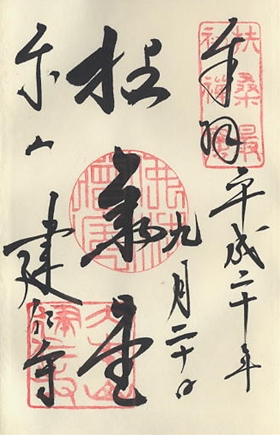 扶桑最
初禅窟
奉拝 平成二十年
九月二十日
拈華堂
東山 建仁寺